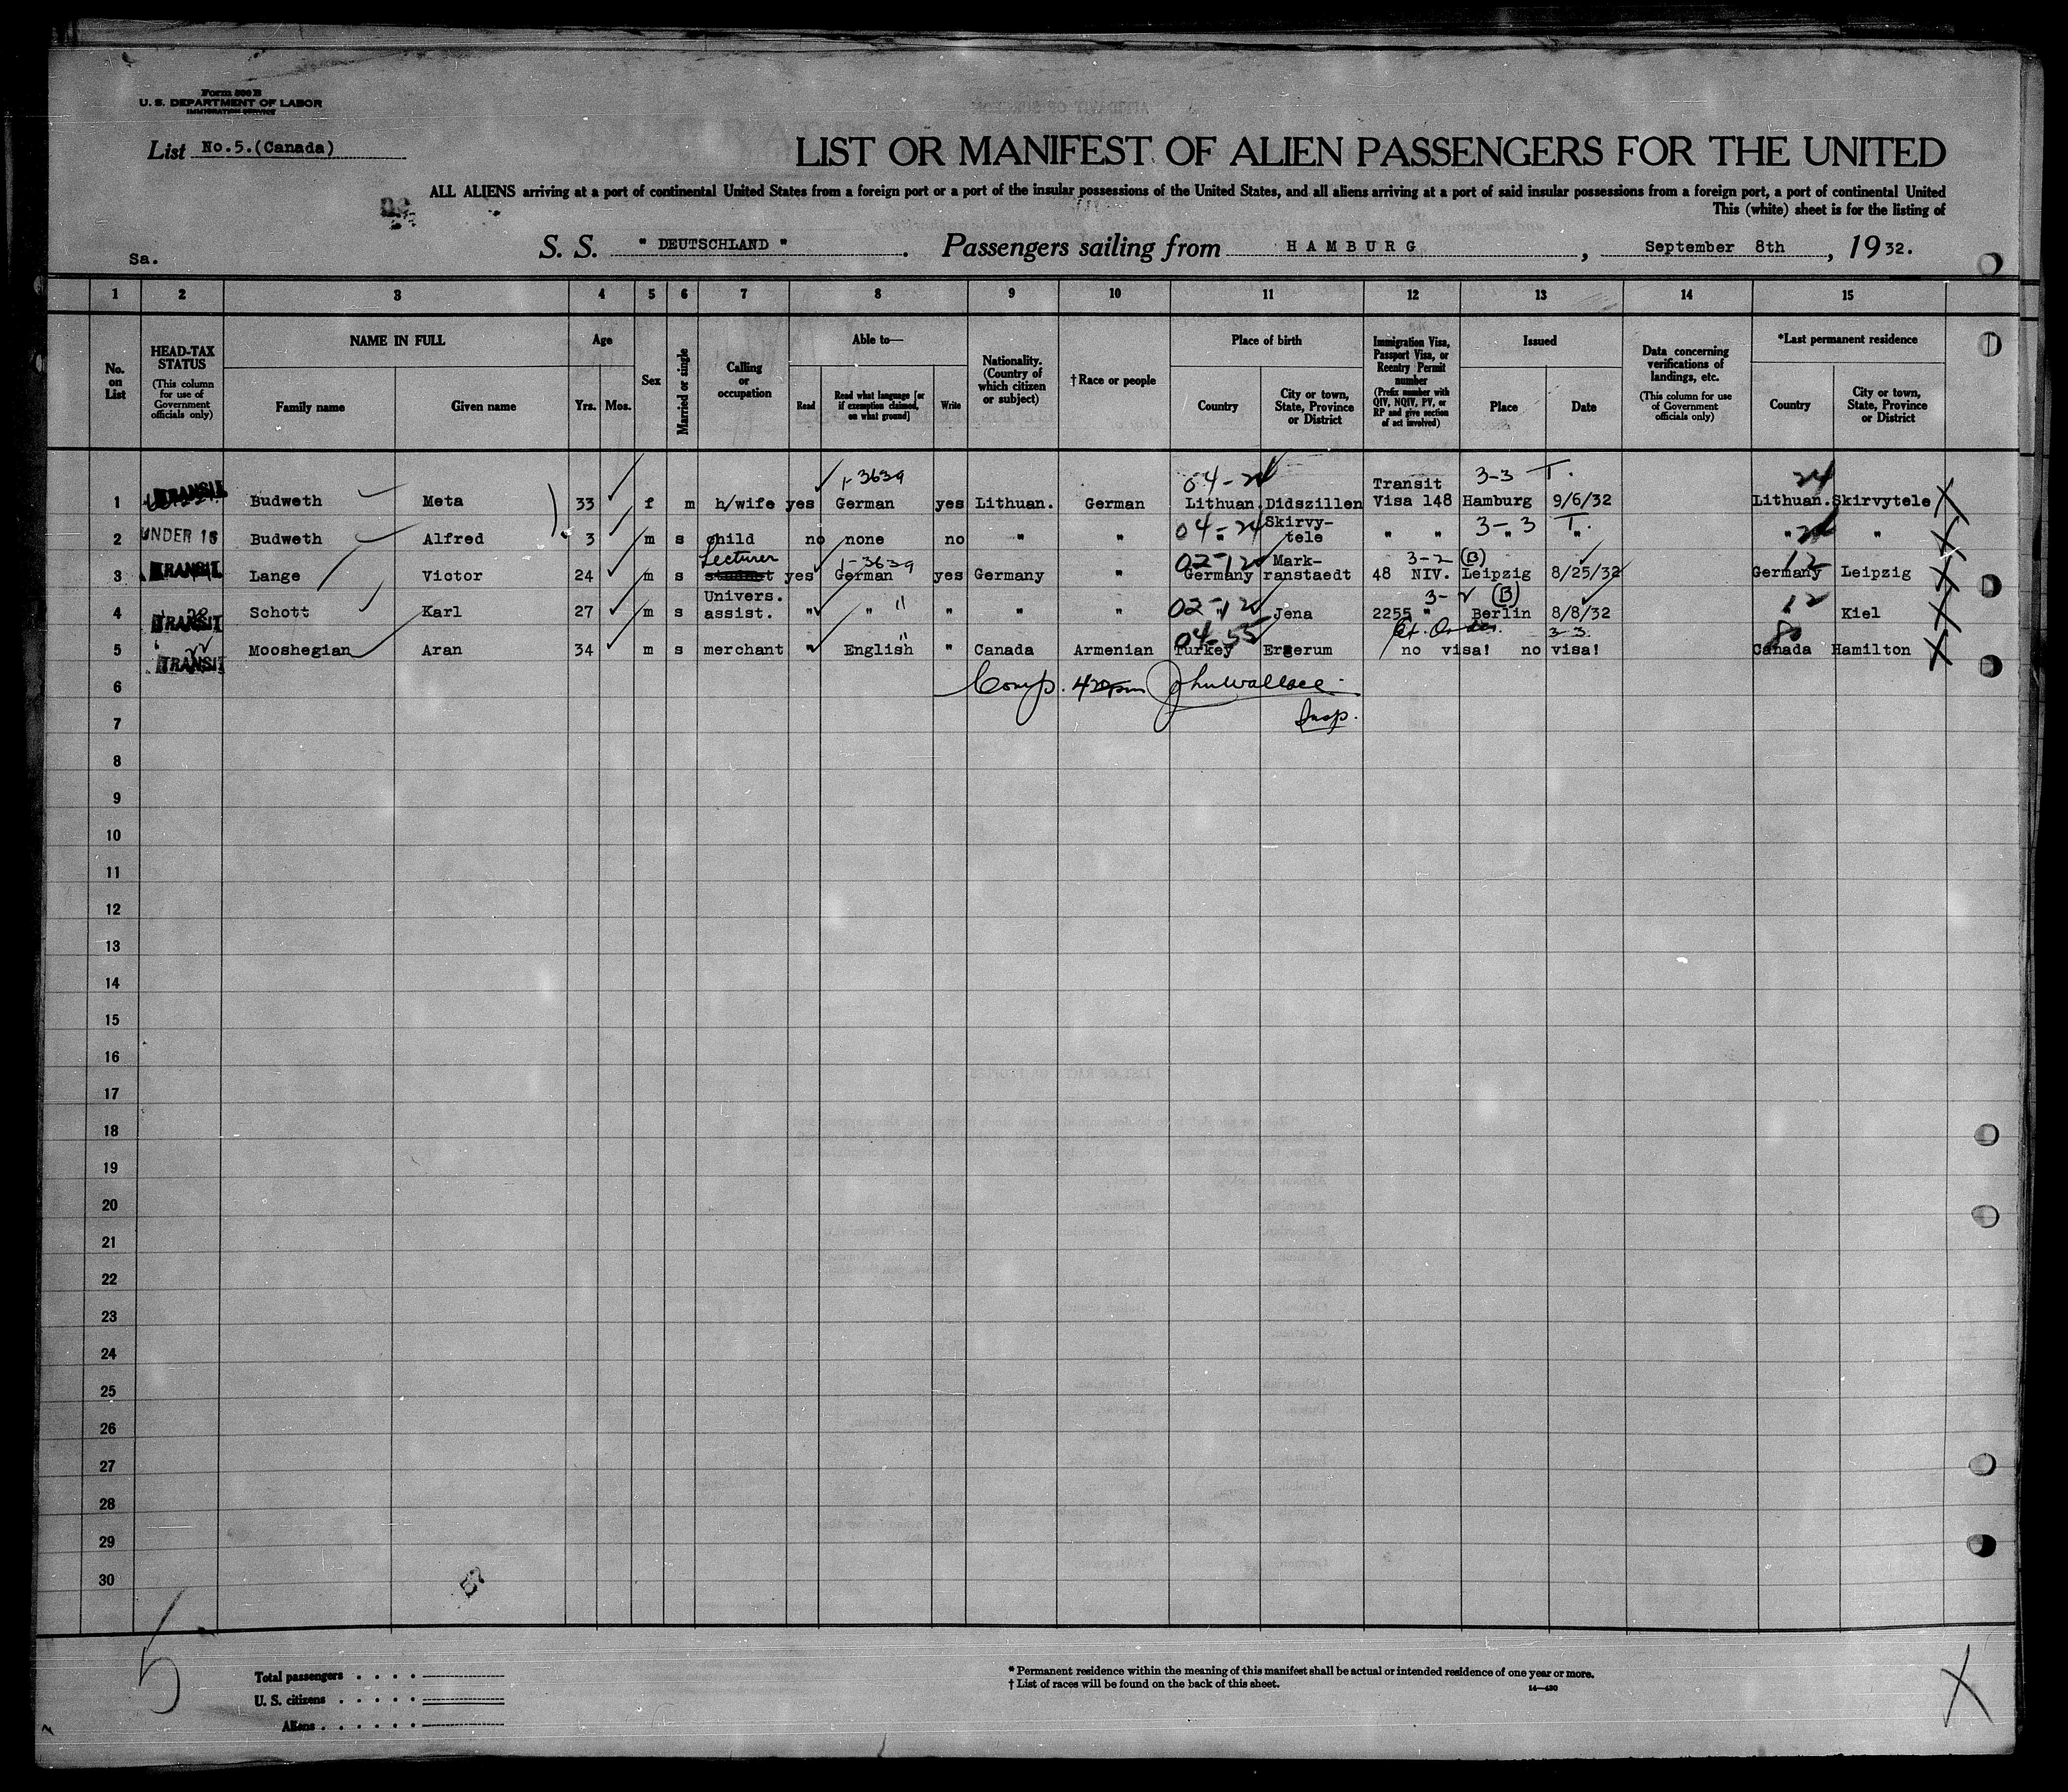 Form 500 B
U. S. DEPARTMENT OF LABOR
IMMIGRATION SERVICE
List No.5.(Canada)
LIST OR MANIFEST OF ALIEN PASSENGERS FOR THE UNITED
ALL ALIENS arriving at a port of continental United States from a foreign port or a port of the insular possessions of the United States, and all aliens arriving at a port of said insular possessions from a foreign port, a port of continental United
This (white) sheet is for the listing of
Sa.
S. S. " DEUTSCHLAND " . Passengers sailing from HAMBURG , September 8th , 19 32.
1 2 3 4 5 6 7 8 9 10 11 12 13 14 15
No. on List
HEAD-TAX STATUS (This column for use of Government officials only)
NAME IN FULL
Family name Given name
Age
Yrs. Mos.
Sex
Married or single
Calling or occupation
Able to—
Read
Read what language [or if exemption claimed, on what ground]
Write
Nationality. (Country of which citizen or subject)
†Race or people
Place of birth
Country
City or town, State, Province or District
Immigration Visa, Passport Visa, or Reentry Permit number (Prefix number with QIV, NQIV, PV, or RP and give section of act involved)
Issued
Place Date
Data concerning verifications of landings, etc. (This column for use of Government officials only)
*Last permanent residence
Country
City or town, State, Province or District
1-3639 04-24 Transit 3-3 T. 24
1 TRANSIT Budweth Meta 33 f m h/wife yes German yes Lithuan. German Lithuan. Didszillen Visa 148 Hamburg 9/6/32 Lithuan. Skirvytele X
04-24 Skirvy- 3-3 T. 24
2 UNDER 16 Budweth Alfred 3 m s child no none no " " " tele " " " " " " X
Lecturer 1-3639 02-12 Mark- 3-2 (B) 12
3 TRANSIT Lange Victor 24 m s student yes German yes Germany " Germany ranstaedt 48 NIV. Leipzig 8/25/32 Germany Leipzig X
Univers. 02-12 3-2 (B) 12
4 TRANSIT Schott Karl 27 m s assist. " " " " " " " Jena 2255 " Berlin 8/8/32 " Kiel X
04-55 3-3 80
5 TRANSIT Mooshegian Aran 34 m s merchant " English " " Canada Armenian Turkey Ergerum no visa! no visa! Canada Hamilton X
6 Comp. John Wallace
Insp.
7
8
9
10
11
12
13
14
15
16
17
18
19
20
21
22
23
24
25
26
27
28
29
30
57
5
Total passengers . . . .
U. S. citizens . . . . .
Aliens . . . . . .
* Permanent residence within the meaning of this manifest shall be actual or intended residence of one year or more.
† List of races will be found on the back of this sheet.
14—430
X